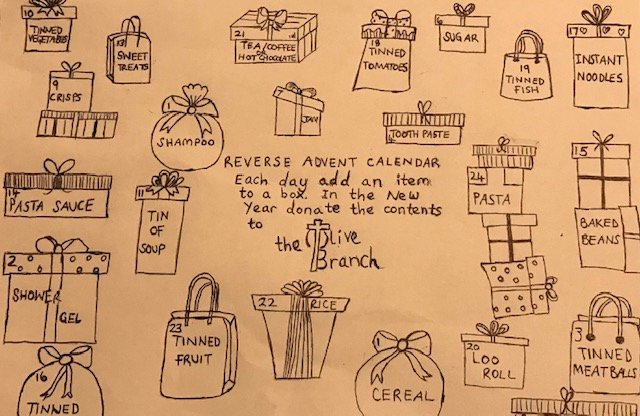 10
TINNED
VEGETABLES
13
SWEET
TREATS
21
TEA/COFFEE
OR
HOT CHOCOLATE
18
TINNED
TOMATOES
6
SUGAR
19
TINNED
FISH
17
INSTANT
NOODLES
9
CRISPS
SHAMPOO
JAM
TOOTH PASTE
REVERSE ADVENT CALENDAR
Each day add an item
to a box. In the New
Year donate the contents
to
the Olive
Branch
14
PASTA SAUCE
11
TIN
OF
SOUP
24
PASTA
15
BAKED
BEANS
2
SHOWER
GEL
23
TINNED
FRUIT
22
RICE
CEREAL
20
LOO
ROLL
3
TINNED
MEATBALLS
16
TINNED